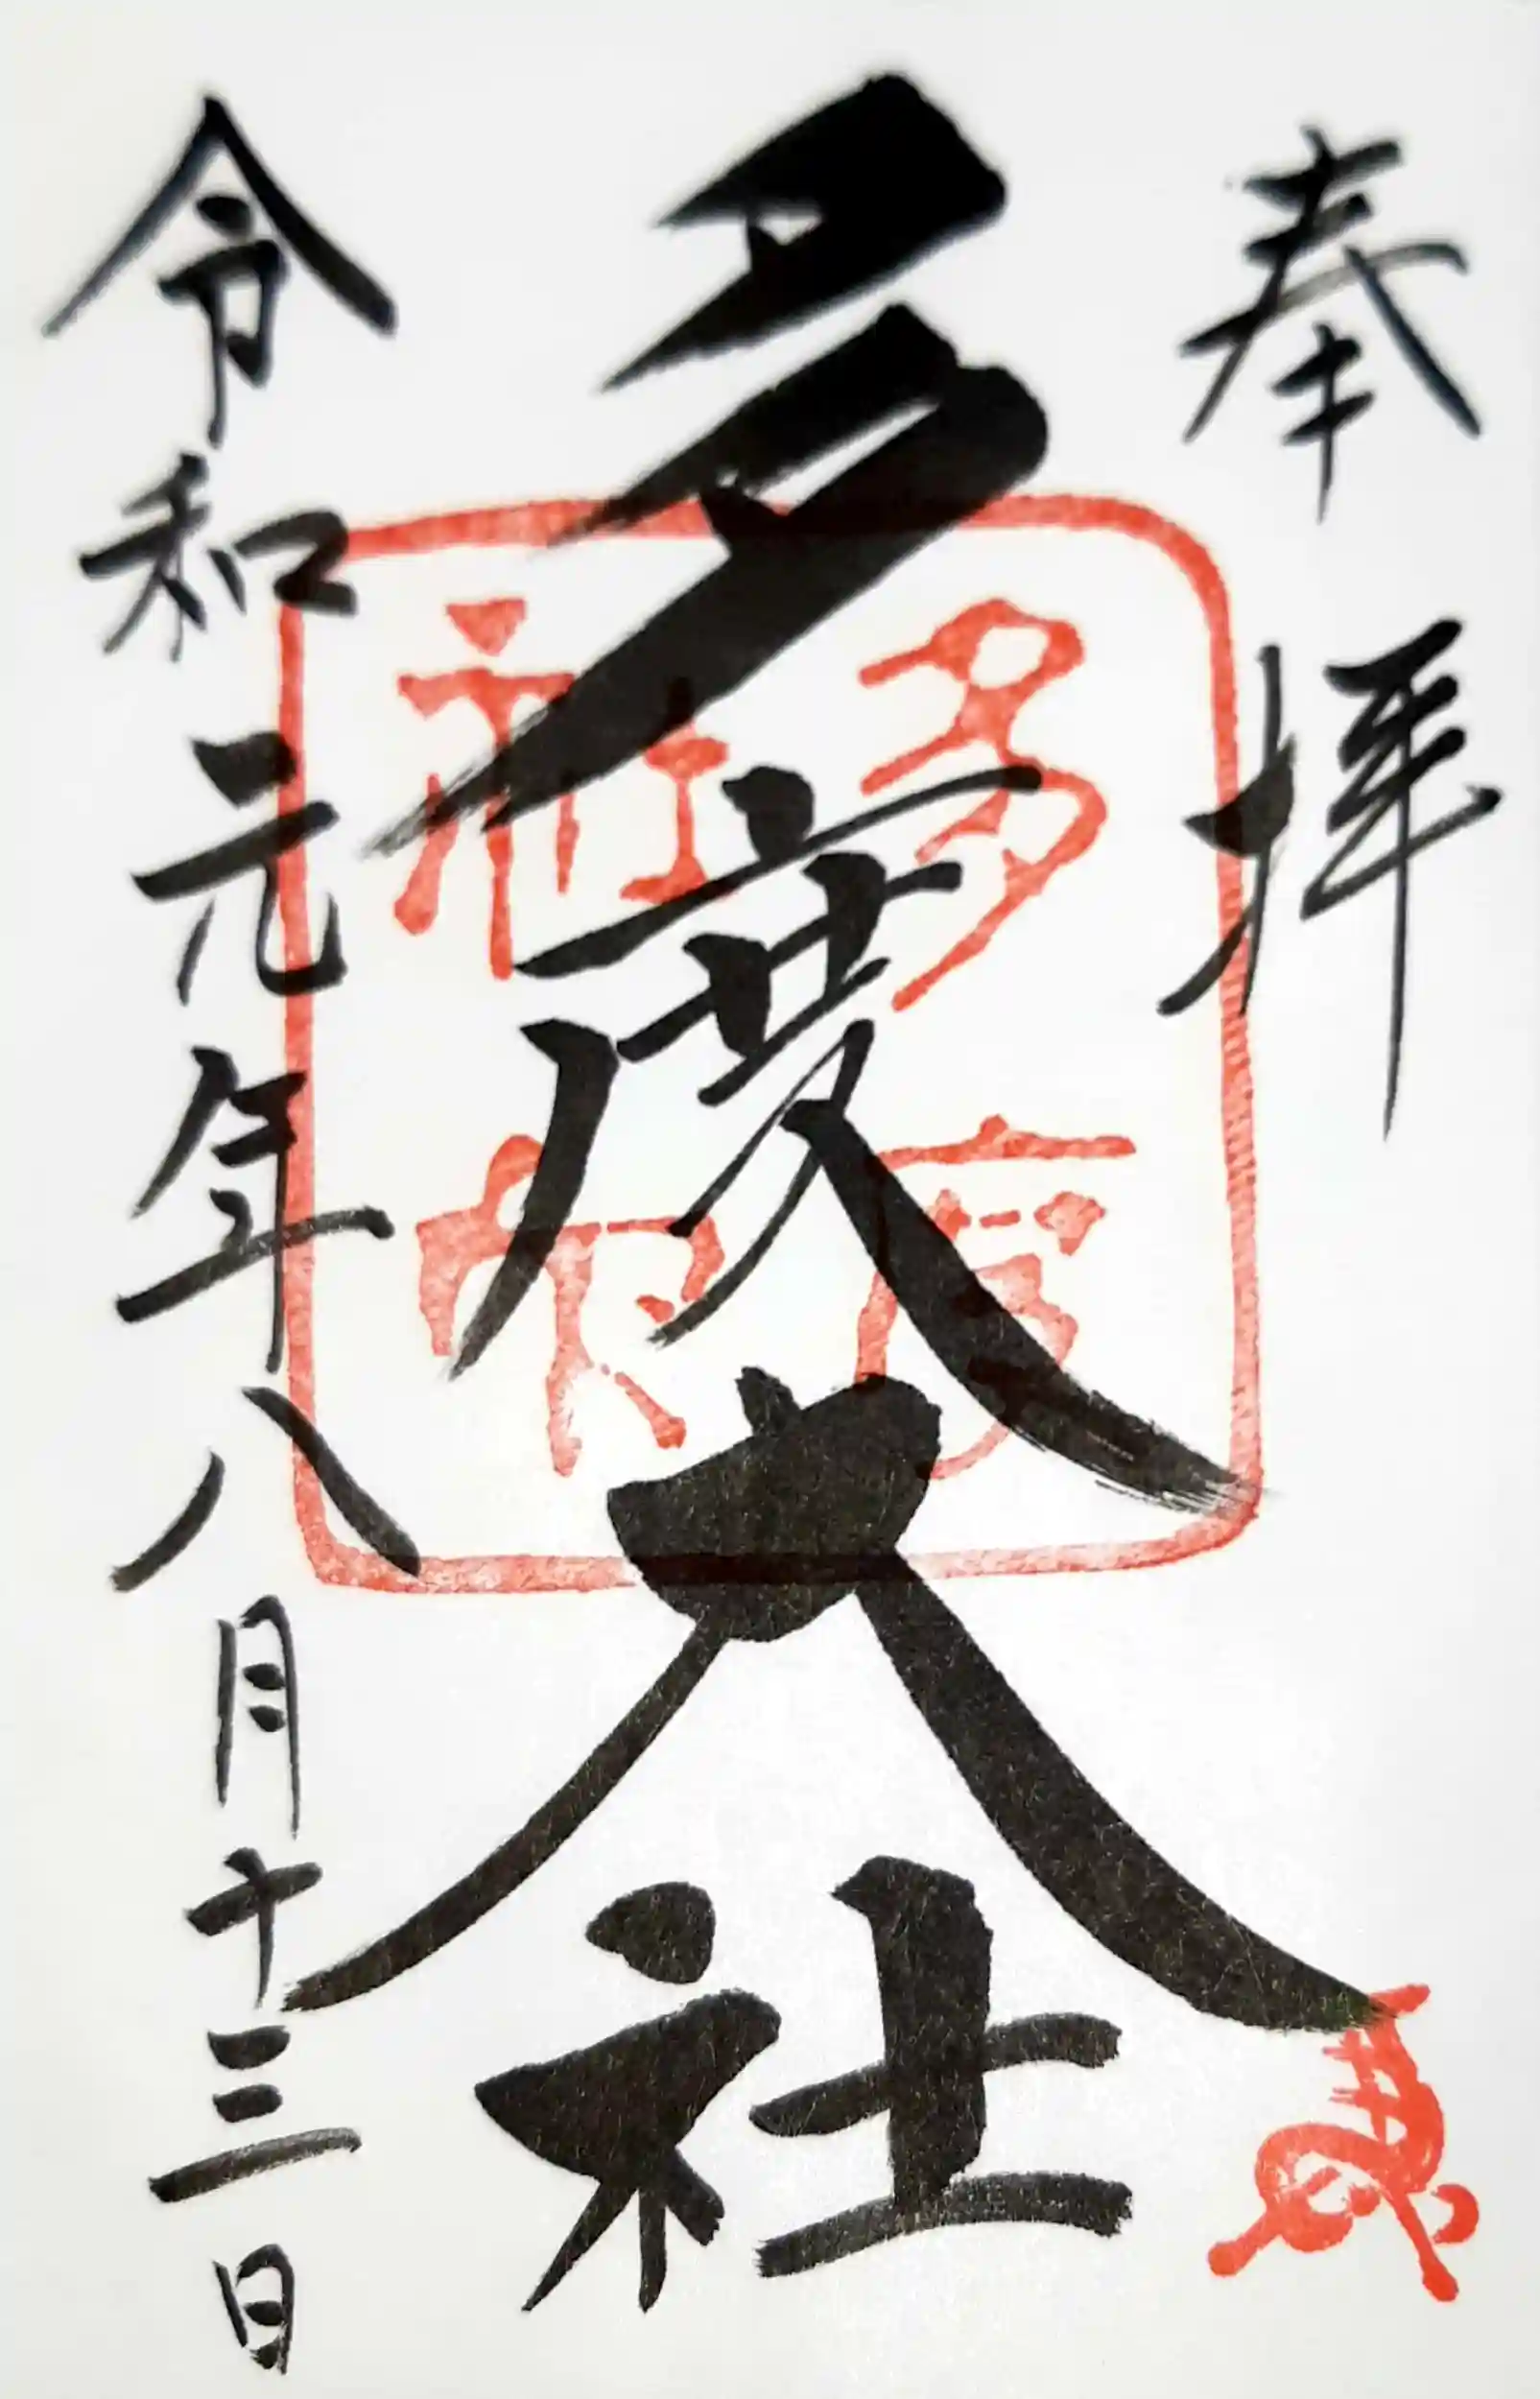 奉拝
多度大社
多度
神社
令和元年八月十三日